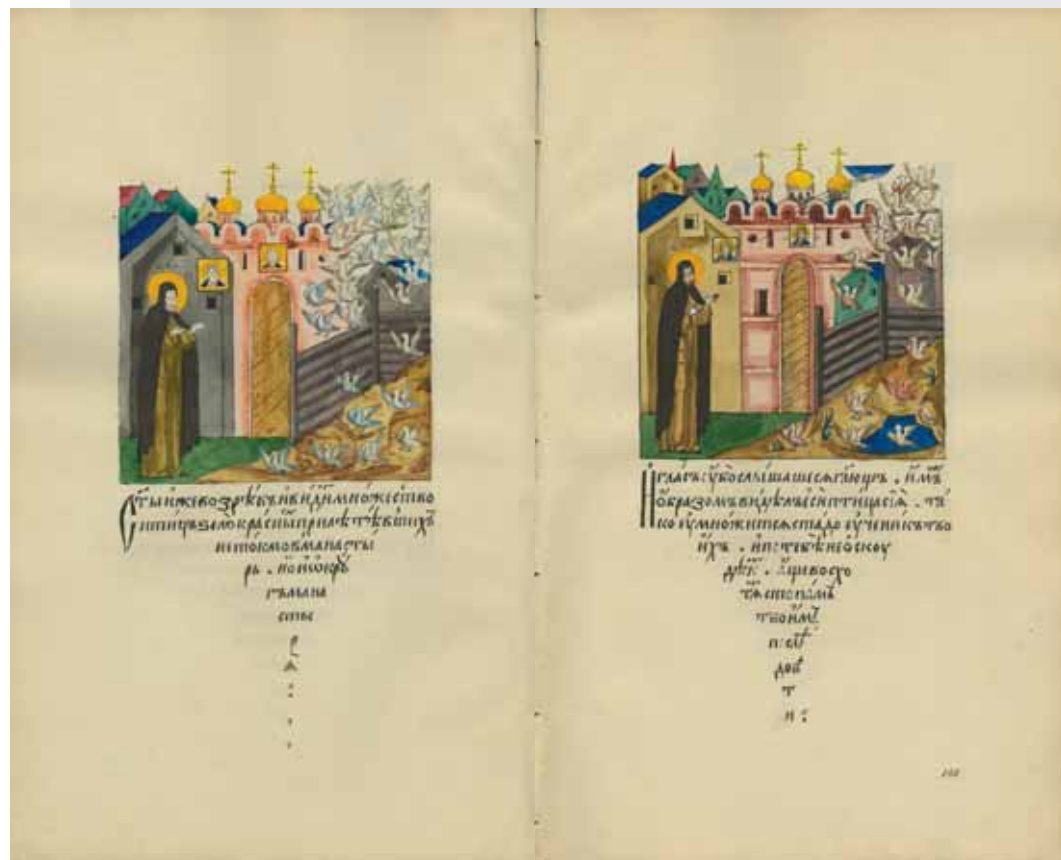 Ст҃ыи́ же воззрѣ́въ и҆ви́ди мно́жество
пти́цъ зело̀ красны́ прилетѣ́вшихъ
не то́кмо вманасты
рь . но̀ и҆ѻ҆крꙋ́
гъ мана
сты
рѧ
И҆ гла́съ ᲂу҆́бо слы́шашесѧ гл҃ющь . и҆́мъ
ѻ҆́бразомъ ви́дѣлъ є҆сѝ пти́ца сїѧ̀ . та́
ко ᲂу҆мно́житсѧ ста́до ᲂу҆чени́къ тво
и҆́хъ . и҆ по тебѣ̀ не ѡ҆скоу
дѣ́ю . а҆́ще восхо
тѧ́ стопа́мъ
твои҆́мъ
послѣ
дова
т
и :